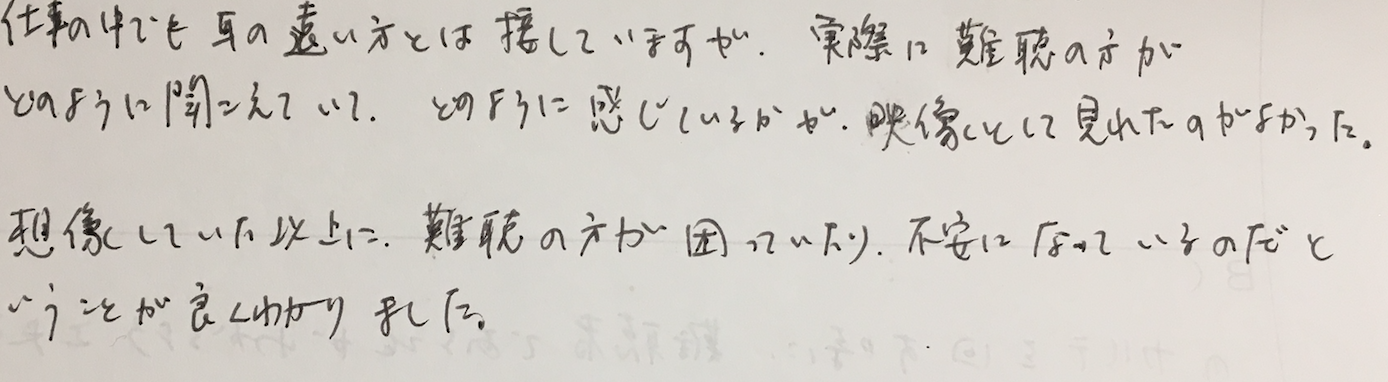 仕事の中でも耳の遠い方とは接していますが、実際に難聴の方が
どのように聞こえていて、どのように感じているかが、映像として見れたのがよかった。
想像していた以上に、難聴の方が困っていたり、不安になっているのだと
いうことが良くわかりました。